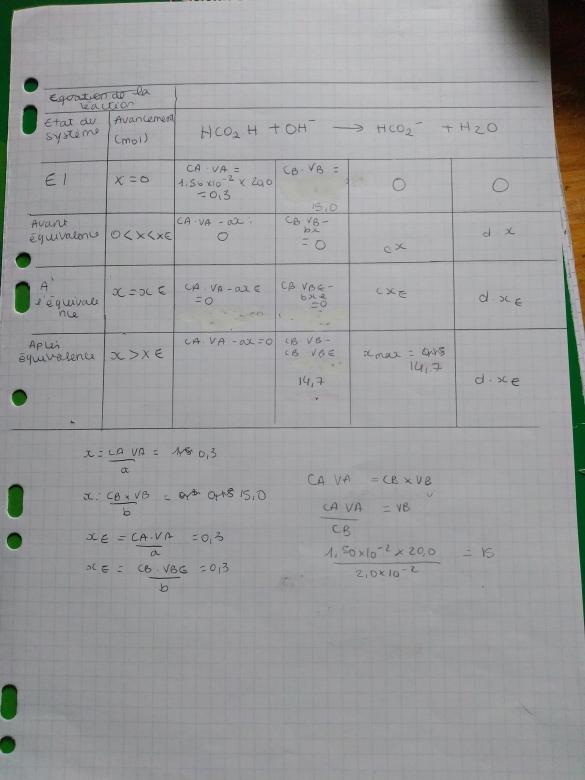 Equation de la
réaction
Etat du
système
Avancement
(mol)
HCO2H + OH⁻ → HCO2⁻ + H2O
EI
x=0
CA·VA =
1.50×10⁻² × 20,0
=0,3
CB·VB =
15,0
0
0
Avant
équivalence
0<x<xE
CA·VA - ax :
0
CB VB-
bx
= 0
cx
d x
A'
l'équivale
nce
x=xE
CA·VA-axE
=0
CB·VBE-
bxE
=0
cxE
d·xE
Après
équivalence
x>xE
CA·VA-ax=0
CB·VB-
CB VBE
14,7
xmax =
14,7
d·xE
x= CA VA = 0,3
a
x: CB×VB = 15,0
b
xE = CA·VA =0,3
a
xE = CB·VBE =0,3
b
CA VA = CB×VB
CA VA = VB
CB
1,50×10⁻² × 20,0 = 15
2,0×10⁻²